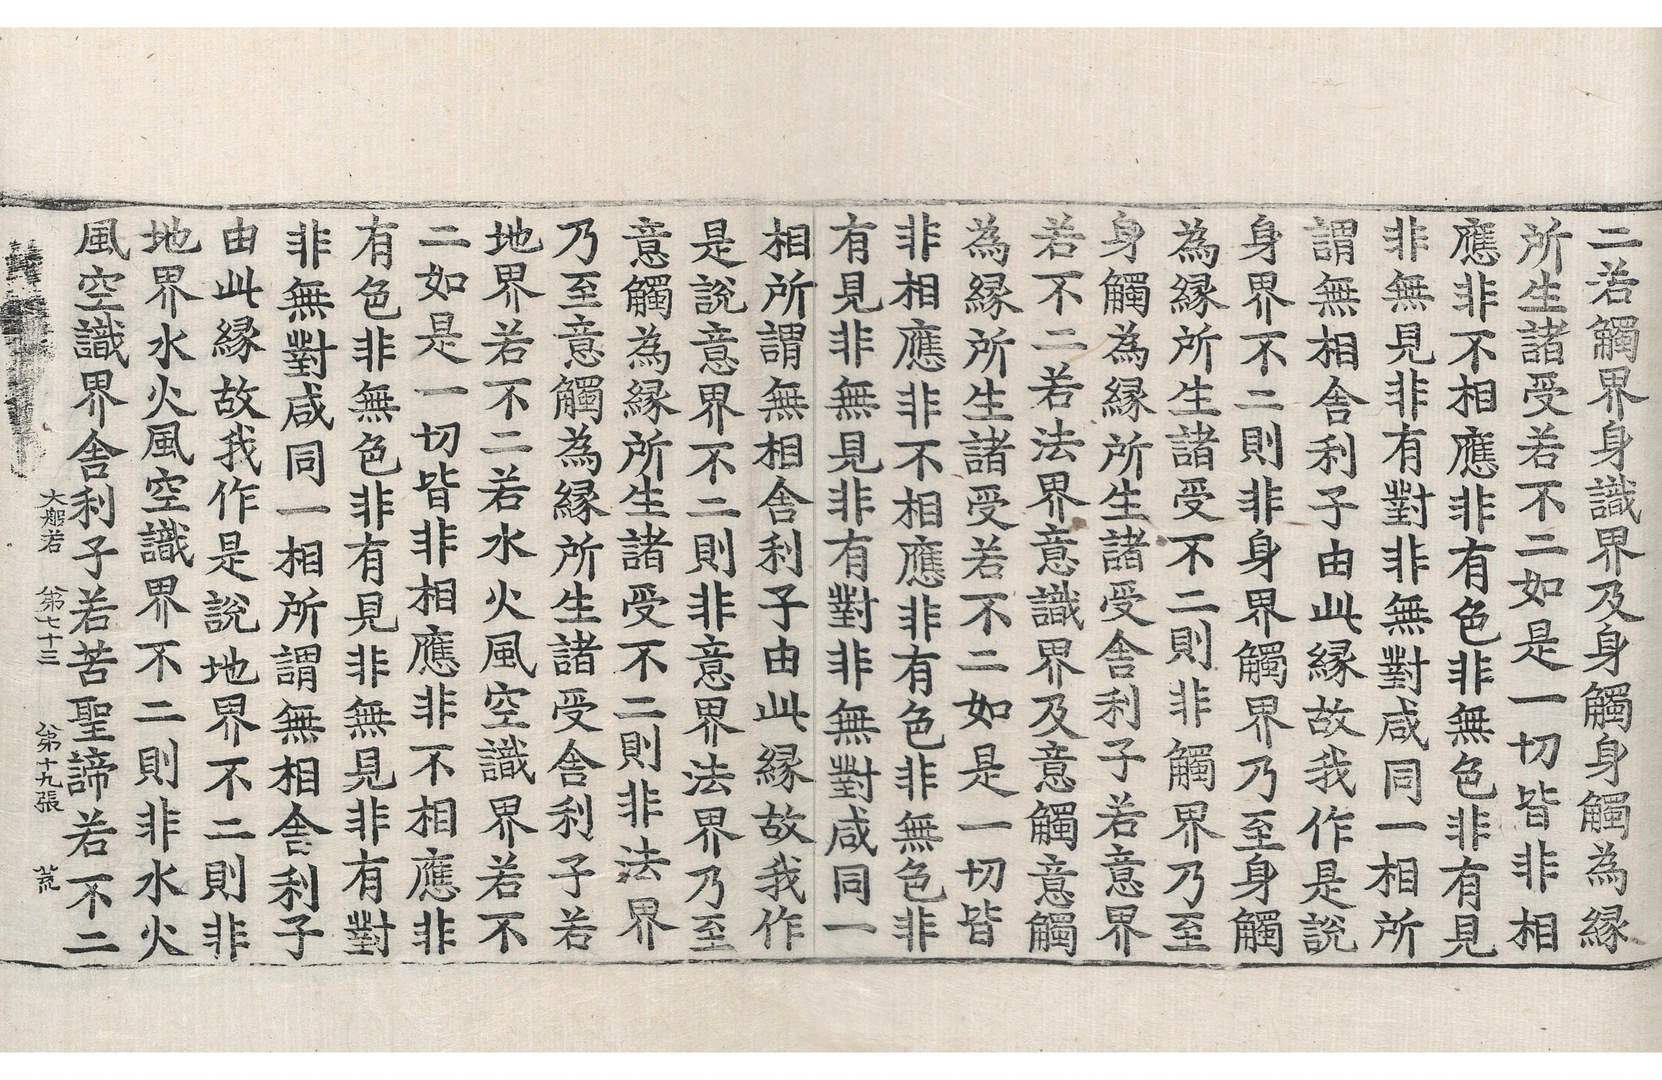 二若觸界身識界及身觸身觸為縁
所生諸受若不二如是一切皆非相
應非不相應非有色非無色非有見
非無見非有對非無對咸同一相所
謂無相舎利子由此縁故我作是說
身界不二則非身界觸界乃至身觸
為縁所生諸受不二則非觸界乃至
身觸為縁所生諸受舎利子若意界
若不二若法界意識界及意觸意觸
為縁所生諸受若不二如是一切皆
非相應非不相應非有色非無色非
有見非無見非有對非無對咸同一
相所謂無相舎利子由此縁故我作
是說意界不二則非意界法界乃至
意觸為縁所生諸受不二則非法界
乃至意觸為縁所生諸受舎利子若
地界若不二若水火風空識界若不
二如是一切皆非相應非不相應非
有色非無色非有見非無見非有對
非無對咸同一相所謂無相舎利子
由此縁故我作是說地界不二則非
地界水火風空識界不二則非水火
風空識界舎利子若苦聖諦若不二
大般若 第七十三 第十九張 荒